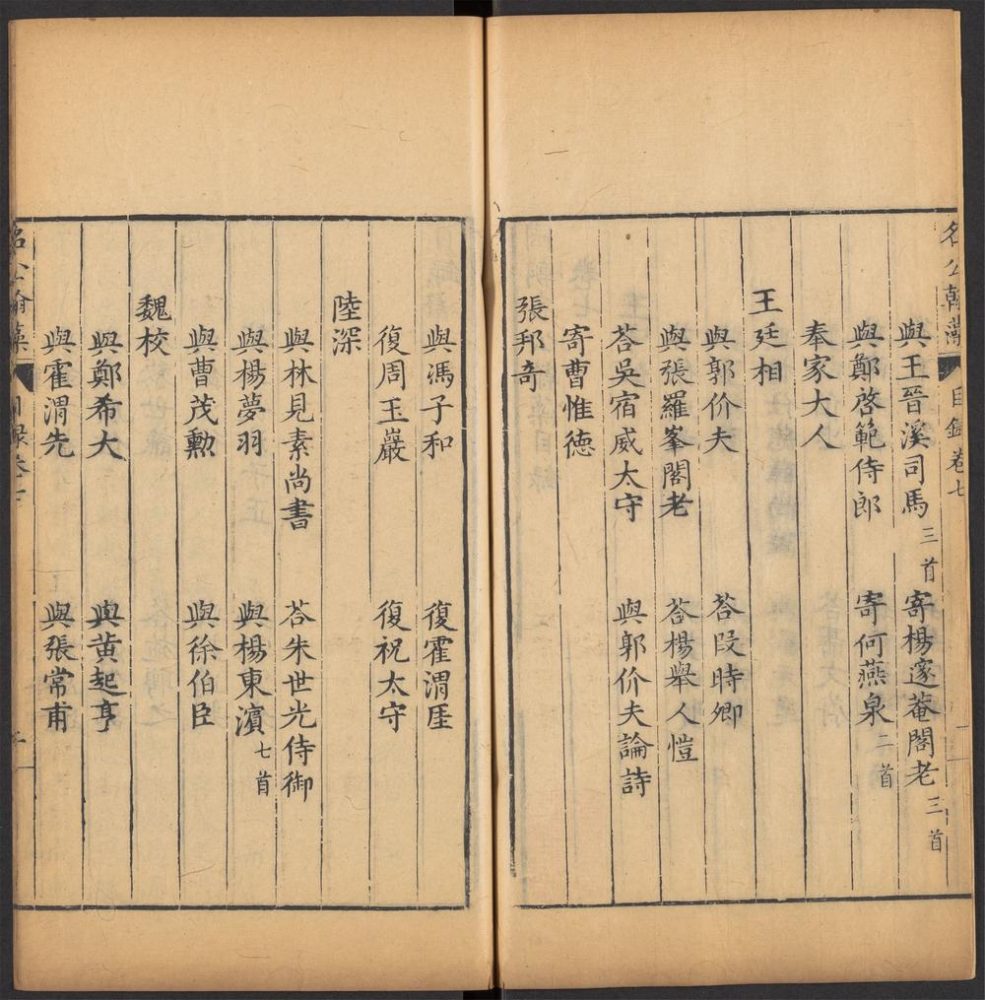 名公翰藻 目錄卷七
與王晉溪司馬三首 寄楊邃菴閣老三首
與鄭啓範侍郎 寄何燕泉二首
奉家大人
王廷相
與郭价夫 荅段時卿
與張羅峯閣老 荅楊舉人愷
荅吳宿威太守 與郭价夫論詩
寄曹惟德
張邦奇
與馮子和 復霍渭厓
復周玉巖 復祝太守
陸深
與林見素尚書 荅朱世光侍御
與楊夢羽 與楊東濱七首
與曹茂勲 與徐伯臣
魏校
與鄭希大 與黄起亨
與霍渭先 與張常甫
名公翰藻 目錄卷七